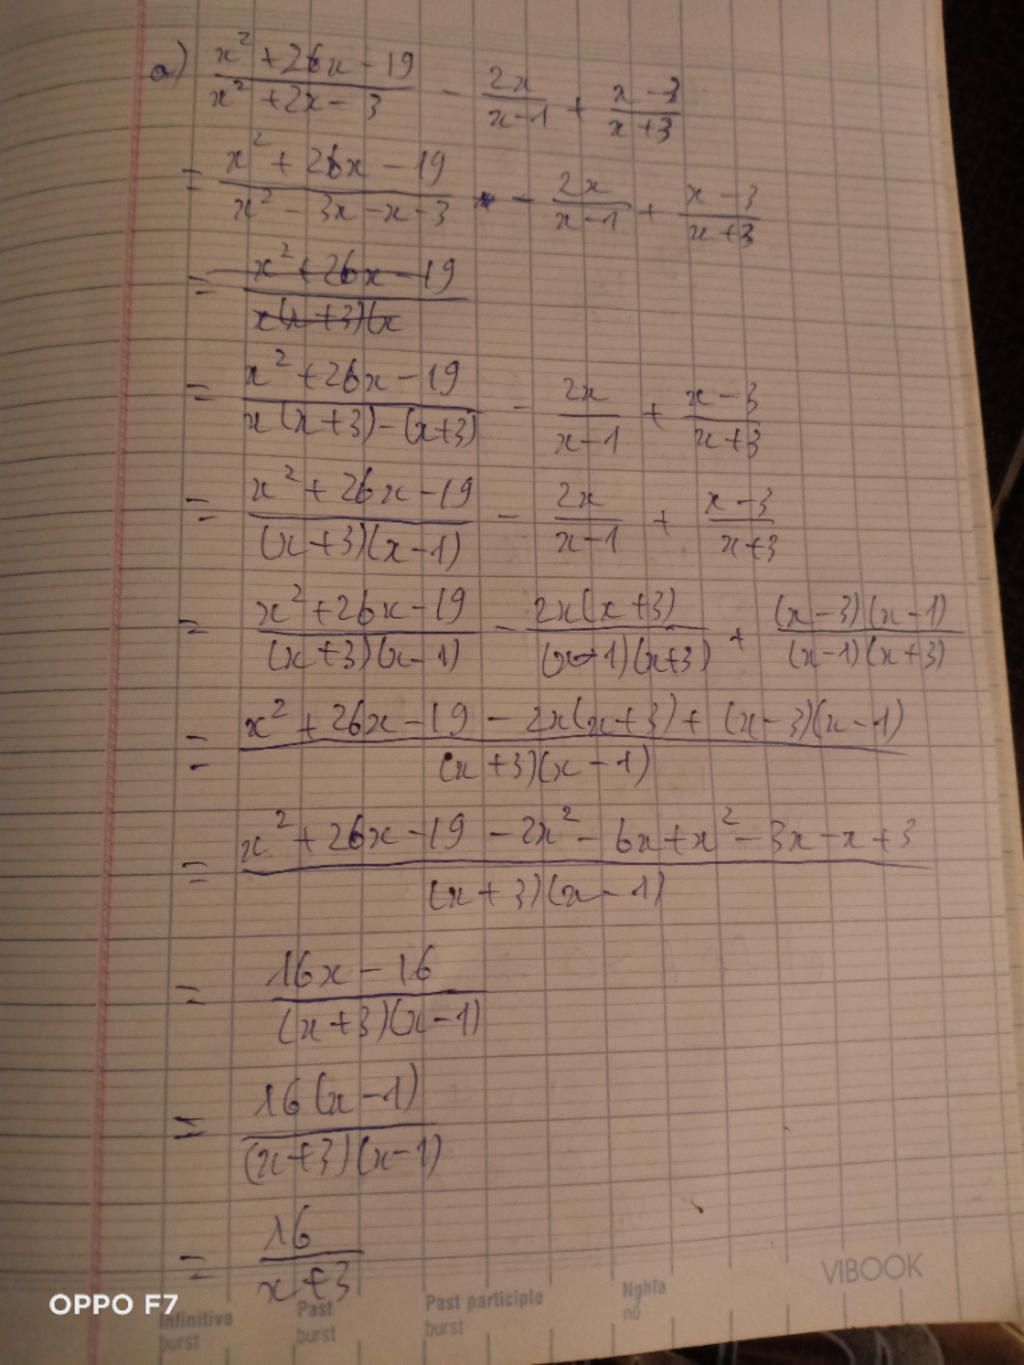 a) \frac{x^2 + 26x - 19}{x^2 + 2x - 3} - \frac{2x}{x - 1} + \frac{x - 3}{x + 3}
= \frac{x^2 + 26x - 19}{x^2 - 3x - x - 3} - \frac{2x}{x - 1} + \frac{x - 3}{x + 3}
= \frac{x^2 + 26x - 19}{x(x + 3)(x}
= \frac{x^2 + 26x - 19}{x(x + 3) - (x + 3)} - \frac{2x}{x - 1} + \frac{x - 3}{x + 3}
= \frac{x^2 + 26x - 19}{(x + 3)(x - 1)} - \frac{2x}{x - 1} + \frac{x - 3}{x + 3}
= \frac{x^2 + 26x - 19}{(x + 3)(x - 1)} - \frac{2x(x + 3)}{(x - 1)(x + 3)} + \frac{(x - 3)(x - 1)}{(x - 1)(x + 3)}
= \frac{x^2 + 26x - 19 - 2x(x + 3) + (x - 3)(x - 1)}{(x + 3)(x - 1)}
= \frac{x^2 + 26x - 19 - 2x^2 - 6x + x^2 - 3x - x + 3}{(x + 3)(x - 1)}
= \frac{16x - 16}{(x + 3)(x - 1)}
= \frac{16(x - 1)}{(x + 3)(x - 1)}
= \frac{16}{x + 3}
VIBOOK
OPPO F7
Infinitive Past Past participle Nghĩa
burst burst burst nổ